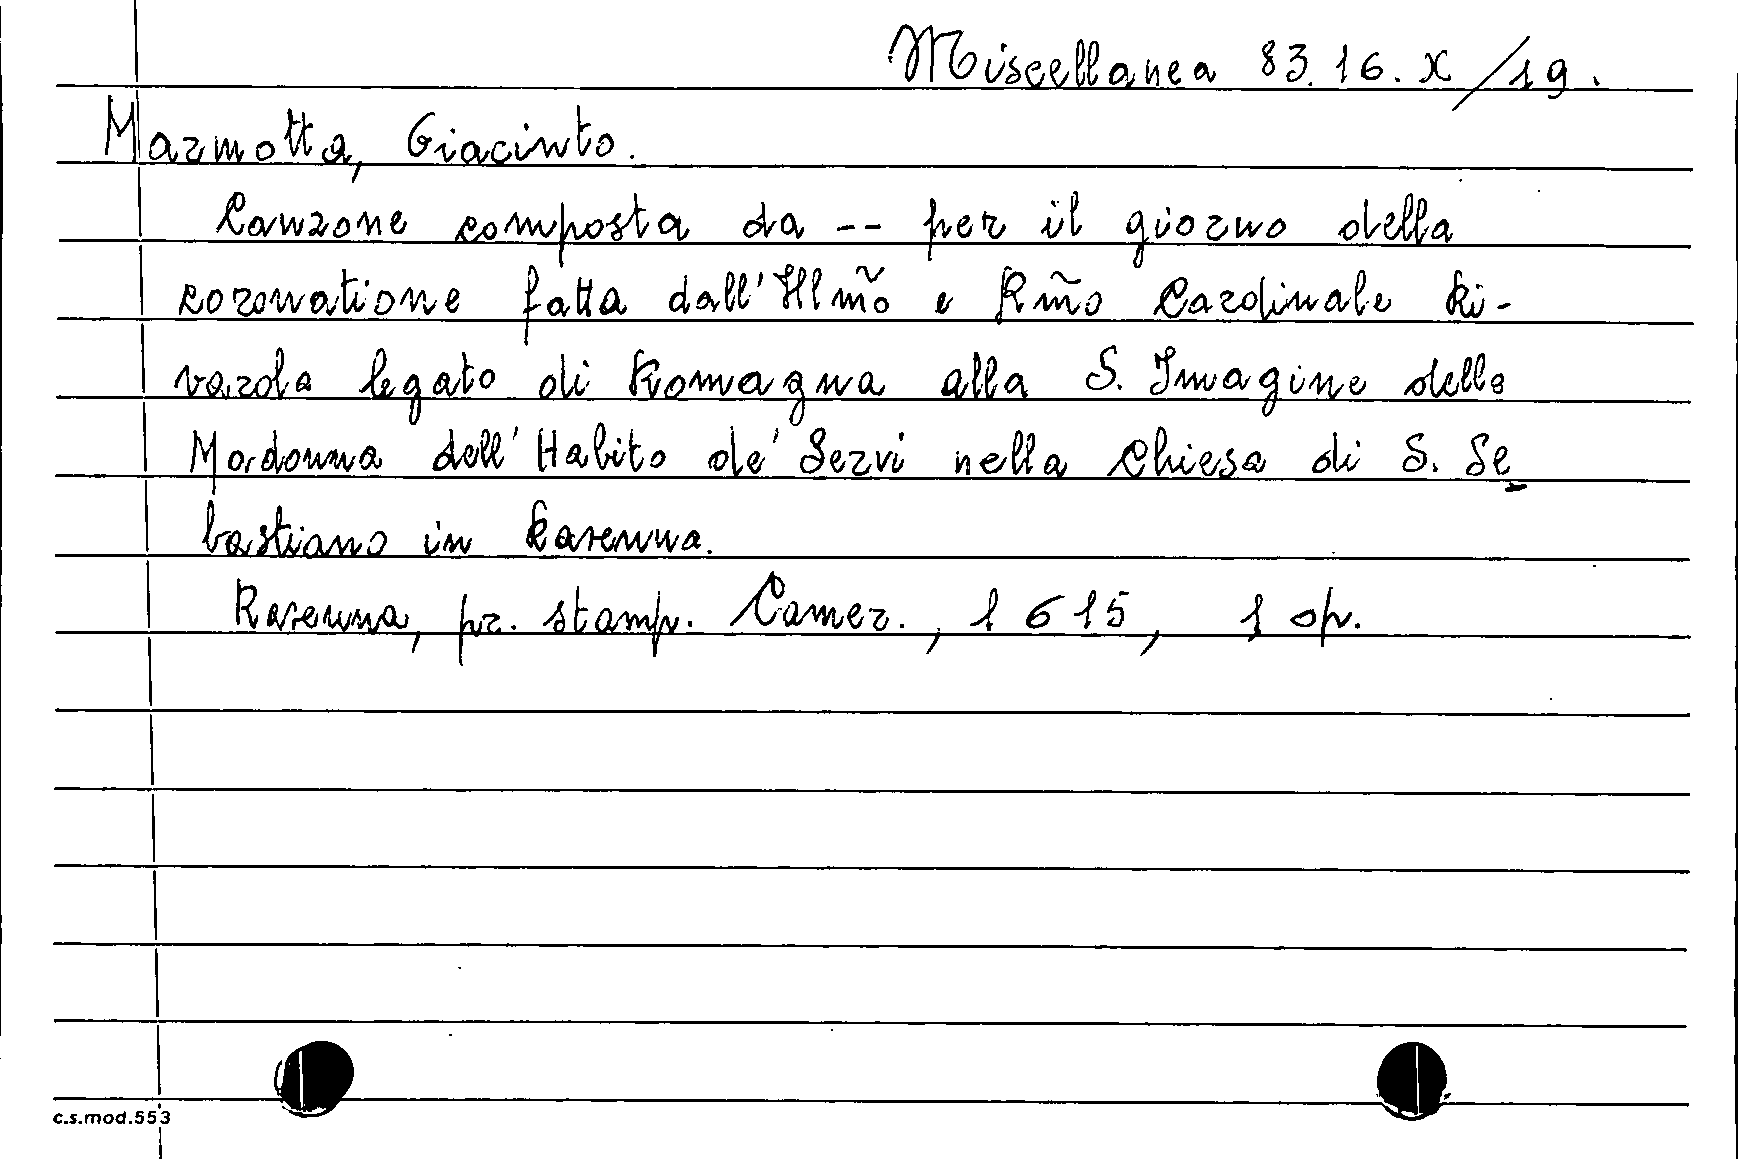 Miscellanea 83.16.X/19.
Marmotta, Giacinto.
Canzone composta da -- per il giorno della
coronatione fatta dall'Illm̃o e Rm̃o Cardinale Ri-
varola legato di Romagna alla S. Imagine della
Madonna dell'Habito de' Servi nella Chiesa di S. Se
bastiano in Ravenna.
Ravenna, pr. stamp. Camer., 1615, 1 op.
c.s.mod.553